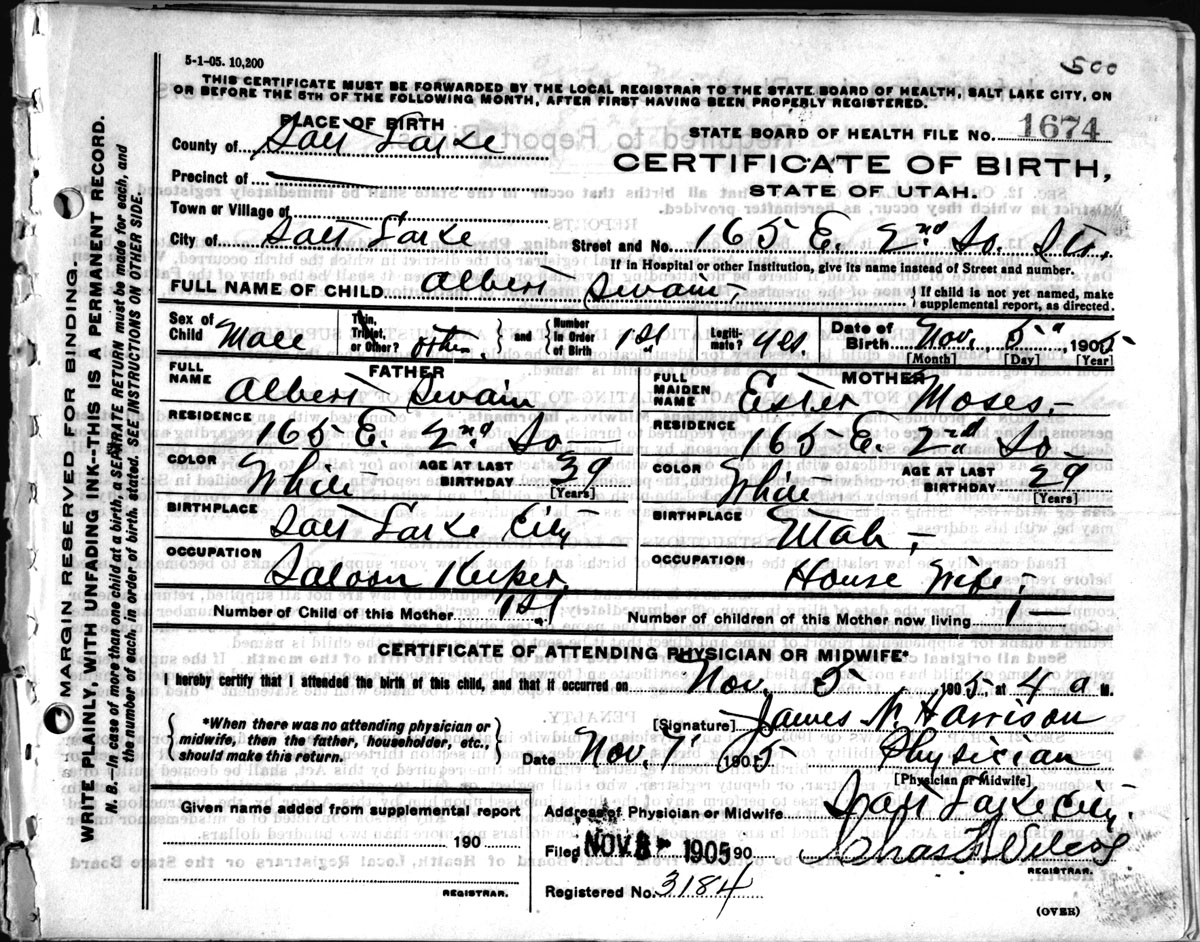 5-1-05. 10,200
500
THIS CERTIFICATE MUST BE FORWARDED BY THE LOCAL REGISTRAR TO THE STATE BOARD OF HEALTH, SALT LAKE CITY, ON
OR BEFORE THE 5TH OF THE FOLLOWING MONTH, AFTER FIRST HAVING BEEN PROPERLY REGISTERED.
PLACE OF BIRTH
STATE BOARD OF HEALTH FILE No. 1674
County of Salt Lake
CERTIFICATE OF BIRTH,
Precinct of
STATE OF UTAH.
Town or Village of
City of Salt Lake Street and No. 165 E. 2nd So. Sts,
If in Hospital or other Institution, give its name instead of Street and number.
FULL NAME OF CHILD Albert Swain, { If child is not yet named, make supplemental report, as directed.
Sex of Child Male Twin, Triplet, or Other? other } and { Number in Order of Birth 1st Legitimate? yes Date of Birth Nov. 5" 1905
[Month] [Day] [Year]
FATHER
MOTHER
FULL NAME Albert Swain
FULL MAIDEN NAME Ester Moses,
RESIDENCE 165 E. 2nd So
RESIDENCE 165 E. 2nd So
COLOR White AGE AT LAST BIRTHDAY 39 [Years]
COLOR White AGE AT LAST BIRTHDAY 29 [Years]
BIRTHPLACE Salt Lake City
BIRTHPLACE Utah,
OCCUPATION Saloon Keeper
OCCUPATION House Wife,
Number of Child of this Mother 1st Number of children of this Mother now living 1
CERTIFICATE OF ATTENDING PHYSICIAN OR MIDWIFE*
I hereby certify that I attended the birth of this child, and that it occurred on Nov. 5 1905 at 4 a M.
{ *When there was no attending physician or midwife, then the father, householder, etc., should make this return. }
[Signature] James N. Harrison
Date Nov. 7 1905 Physician
[Physician or Midwife]
Given name added from supplemental report
190
REGISTRAR.
Address of Physician or Midwife Salt Lake City
Filed NOV 8 1905 90
REGISTRAR.
Registered No. 3184
(OVER)
MARGIN RESERVED FOR BINDING.
WRITE PLAINLY, WITH UNFADING INK--THIS IS A PERMANENT RECORD.
N. B.--In case of more than one child at a birth, a SEPARATE RETURN must be made for each, and
the number of each, in order of birth, stated. SEE INSTRUCTIONS ON OTHER SIDE.